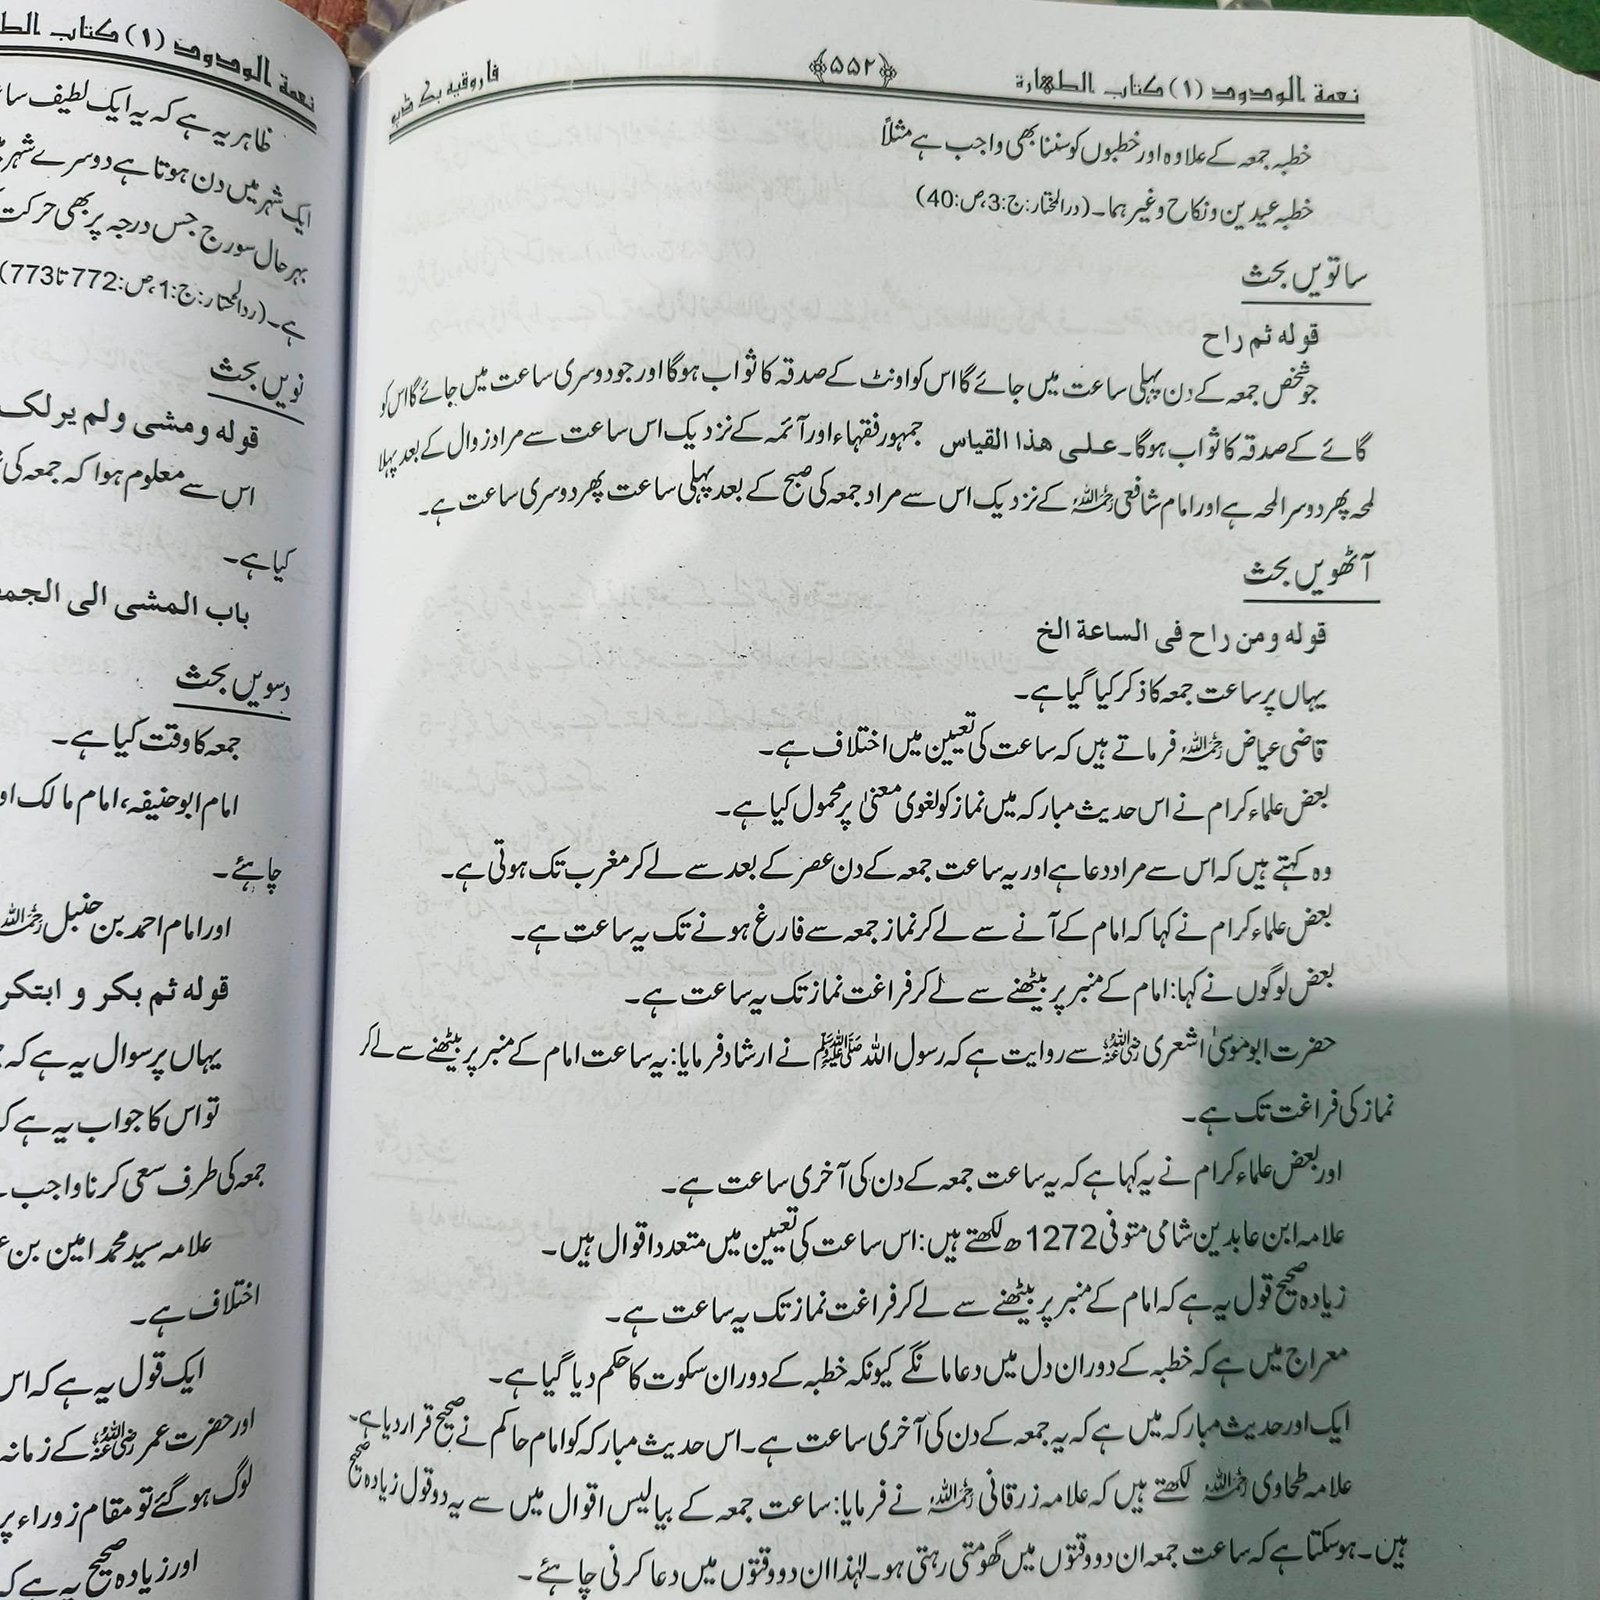 نعمة الودود (۱) كتاب الطهارة ﴿۵۵۲﴾ فاروقیہ بک ڈپو
خطبہ جمعہ کے علاوہ اور خطبوں کو سننا بھی واجب ہے مثلاً
خطبہ عیدین و نکاح وغیرہما۔ (درالمختار: ج:3، ص:40)
ساتویں بحث
قوله ثم راح
جو شخص جمعہ کے دن پہلی ساعت میں جائے گا اس کو اونٹ کے صدقہ کا ثواب ہوگا اور جو دوسری ساعت میں جائے گا اس کو
گائے کے صدقہ کا ثواب ہوگا۔ علی هذا القیاس جمہور فقہاء اور آئمہ کے نزدیک اس ساعت سے مراد زوال کے بعد پہلا
لمحہ پھر دوسرا لمحہ ہے اور امام شافعی رحمہ اللہ کے نزدیک اس سے مراد جمعہ کی صبح کے بعد پہلی ساعت پھر دوسری ساعت ہے۔
آٹھویں بحث
قوله ومن راح فی الساعة الخ
یہاں پر ساعت جمعہ کا ذکر کیا گیا ہے۔
قاضی عیاض رحمہ اللہ فرماتے ہیں کہ ساعت کی تعیین میں اختلاف ہے۔
بعض علماء کرام نے اس حدیث مبارکہ میں نماز کو لغوی معنیٰ پر محمول کیا ہے۔
وہ کہتے ہیں کہ اس سے مراد دعا ہے اور یہ ساعت جمعہ کے دن عصر کے بعد سے لے کر مغرب تک ہوتی ہے۔
بعض علماء کرام نے کہا کہ امام کے آنے سے لے کر نماز جمعہ سے فارغ ہونے تک یہ ساعت ہے۔
بعض لوگوں نے کہا: امام کے منبر پر بیٹھنے سے لے کر فراغت نماز تک یہ ساعت ہے۔
حضرت ابو موسیٰ اشعری رضی اللہ عنہ سے روایت ہے کہ رسول اللہ ﷺ نے ارشاد فرمایا: یہ ساعت امام کے منبر پر بیٹھنے سے لے کر
نماز کی فراغت تک ہے۔
اور بعض علماء کرام نے یہ کہا ہے کہ یہ ساعت جمعہ کے دن کی آخری ساعت ہے۔
علامہ ابن عابدین شامی متوفی 1272ھ لکھتے ہیں: اس ساعت کی تعیین میں متعدد اقوال ہیں۔
زیادہ صحیح قول یہ ہے کہ امام کے منبر پر بیٹھنے سے لے کر فراغت نماز تک یہ ساعت ہے۔
معراج میں ہے کہ خطبہ کے دوران دل میں دعا مانگے کیونکہ خطبہ کے دوران سکوت کا حکم دیا گیا ہے۔
ایک اور حدیث مبارکہ میں ہے کہ یہ جمعہ کے دن کی آخری ساعت ہے۔ اس حدیث مبارکہ کو امام حاکم نے صحیح قرار دیا ہے۔
علامہ طحاوی رحمہ اللہ لکھتے ہیں کہ علامہ زرقانی رحمہ اللہ نے فرمایا: ساعت جمعہ کے بیالیس اقوال میں سے یہ دو قول زیادہ صحیح
ہیں۔ ہو سکتا ہے کہ ساعت جمعہ ان دو وقتوں میں گھومتی رہتی ہو۔ لہٰذا ان دو وقتوں میں دعا کرنی چاہئے۔
نعمة الودود (۱) كتاب
ظاہر یہ ہے کہ یہ ایک لطیف
ایک شہر میں دن ہوتا ہے دوسرے شہر
بہر حال سورج جس درجہ پر بھی حرکت
ہے۔ (ردالمحتار: ج:1، ص:772 تا 773)
نویں بحث
قوله ومشی ولم یرکب
اس سے معلوم ہوا کہ جمعہ کی
کیا ہے۔
باب المشی الی
دسویں بحث
جمعہ کا وقت کیا ہے۔
امام ابو حنیفہ، امام مالک
چاہئے۔
اور امام احمد بن حنبل رحمہ اللہ
قوله ثم بکر و ابتکر
یہاں پر سوال یہ ہے کہ
تو اس کا جواب یہ ہے
جمعہ کی طرف سعی کرنا واجب
علامہ سید محمد امین بن
اختلاف ہے۔
ایک قول یہ ہے کہ اس
اور حضرت عمر رضی اللہ عنہ کے زمانہ
لوگ ہو گئے تو مقام زوراء پر
اور زیادہ صحیح یہ ہے